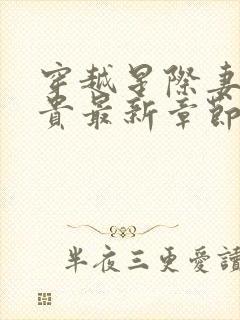 穿越星際妻
貴最新章節
半夜三更愛讀